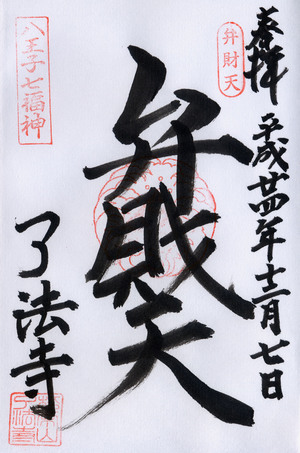 奉拝
弁財天
平成廿四年十二月七日
弁財天
八王子七福神
了法寺